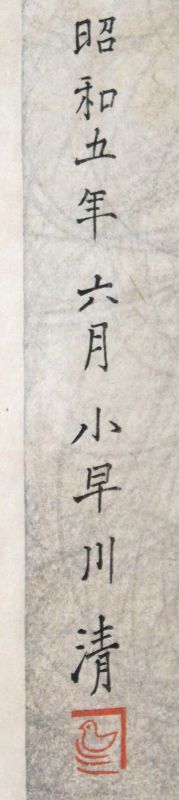 昭和五年 六月 小早川 清